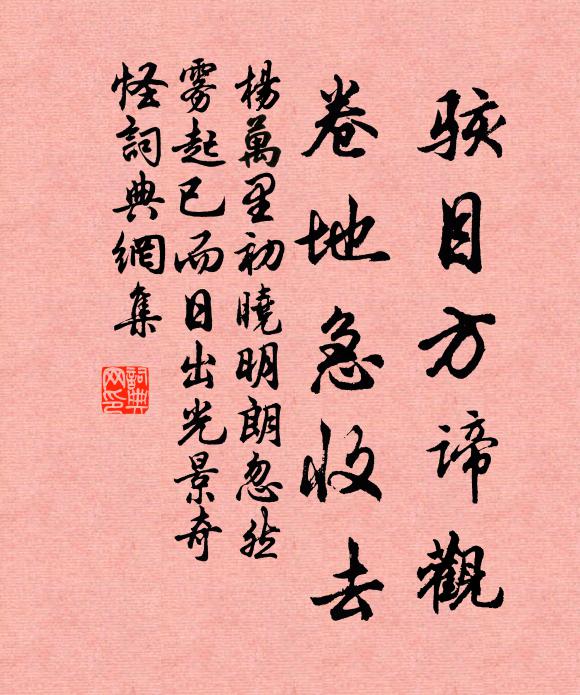 駭目方諦觀
卷地急收去
楊萬里初曉明朗忽然
雾起已而日出光景奇
怪詞典網集
詞典
网印